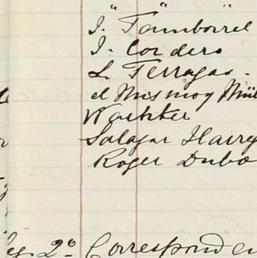 J. "Tamborrel
J. Cordero
L. Terragas -
el mismo y Mül
Waehter
Salazar Harry
Roger Dubo
2º Corresponden